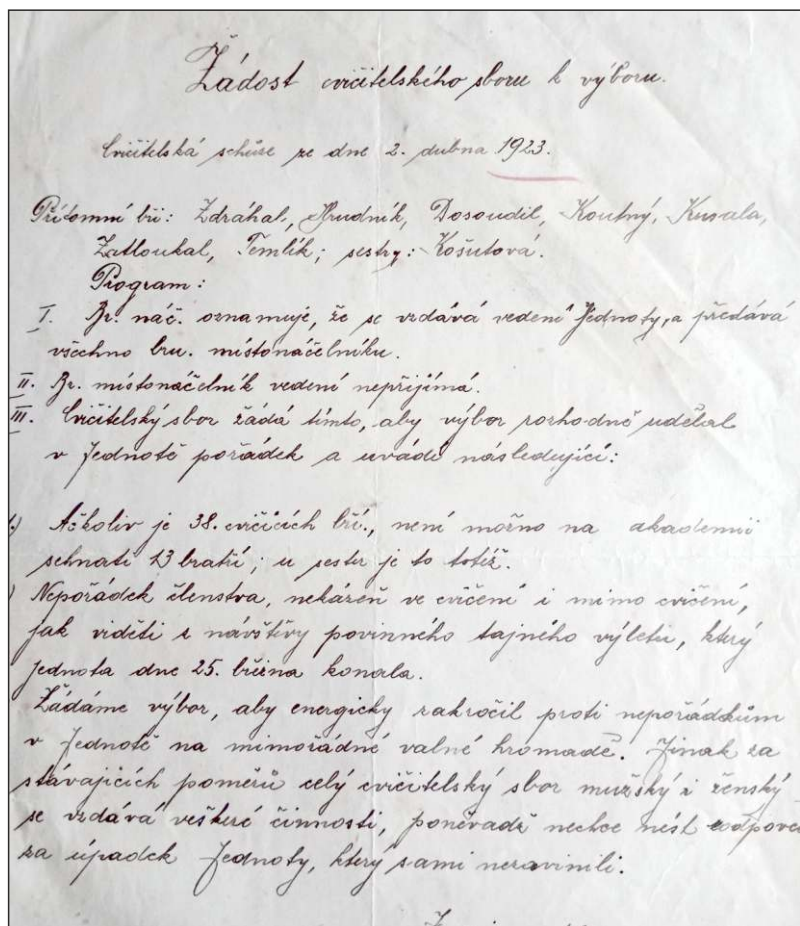 Žádost cvičitelského sboru k výboru.
Cvičitelská schůse ze dne 2. dubna 1923.
Přítomní bři: Zdráhal, Hrudník, Dosoudil, Koutný, Kusala,
Zatloukal, Temlík; sestry: Košutová.
Program:
I. Br. náč. oznamuje, že se vzdává vedení Jednoty, a předává
všechno bru. místonáčelníku.
II. Br. místonáčelník vedení nepřijímá.
III. Cvičitelský sbor žádá tímto, aby výbor rozhodně udělal
v Jednotě pořádek a uvádí následující:
Ačkoliv je 38. cvičících bří., není možno na akademii
sehnati 13 bratří; u sester je to totéž.
Nepořádek členstva, nekázeň ve cvičení i mimo cvičení,
jak viděti z návštěvy povinného tajného výletu, který
Jednota dne 25. března konala.
Žádáme výbor, aby energicky zakročil proti nepořádkům
v Jednotě na mimořádné valné hromadě. Jinak za
stávajících poměrů celý cvičitelský sbor mužský i ženský
se vzdává veškeré činnosti, poněvadž nechce nést zodpově
za úpadek Jednoty, který sami nezavinili.